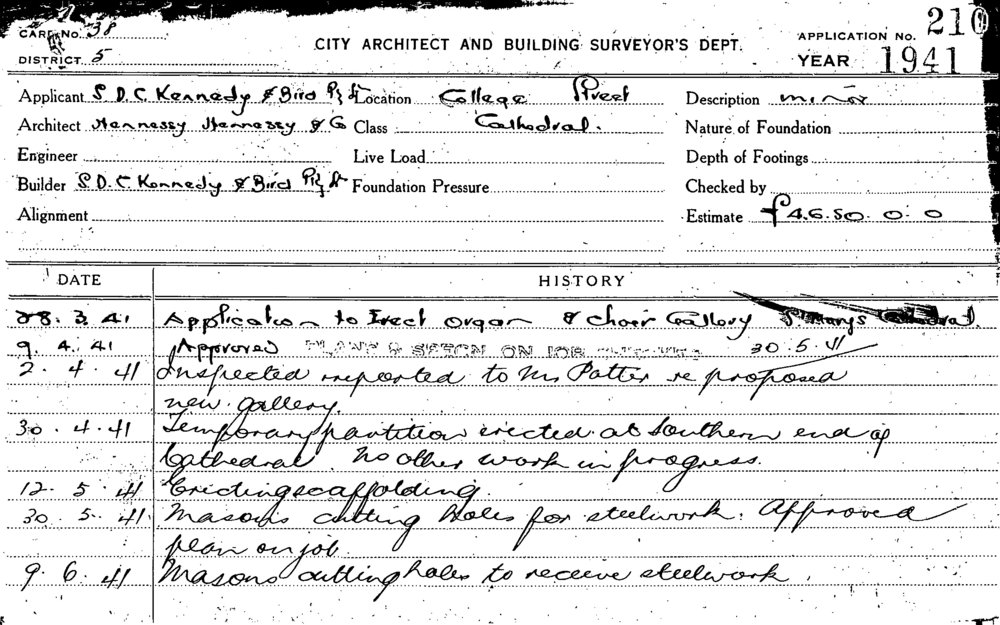 CARD No. 38
DISTRICT 5
CITY ARCHITECT AND BUILDING SURVEYOR'S DEPT.
APPLICATION No. 210
YEAR 1941
Applicant S.D.C. Kennedy & Bird Pty Ltd Location College Street Description minor
Architect Hennessy Hennessy & Co Class Cathedral. Nature of Foundation
Engineer Live Load Depth of Footings
Builder S.D.C Kennedy & Bird Pty Ltd Foundation Pressure Checked by
Alignment Estimate £4650. 0. 0
DATE HISTORY
28. 3. 41 Application to Erect organ & choir Gallery St. Marys Cathedral.
9. 4. 41 Approved PLANS & SPECN ON JOB 30. 5. 41
2. 4. 41 Inspected & reported to Mr Potter re proposed
new gallery.
30. 4. 41 Temporary partition erected at Southern end of
Cathedral. No other work in progress.
12. 5. 41 Erecting scaffolding.
30. 5. 41 Masons cutting holes for steelwork. Approved
plan on job.
9. 6. 41 Masons cutting holes to receive steelwork.